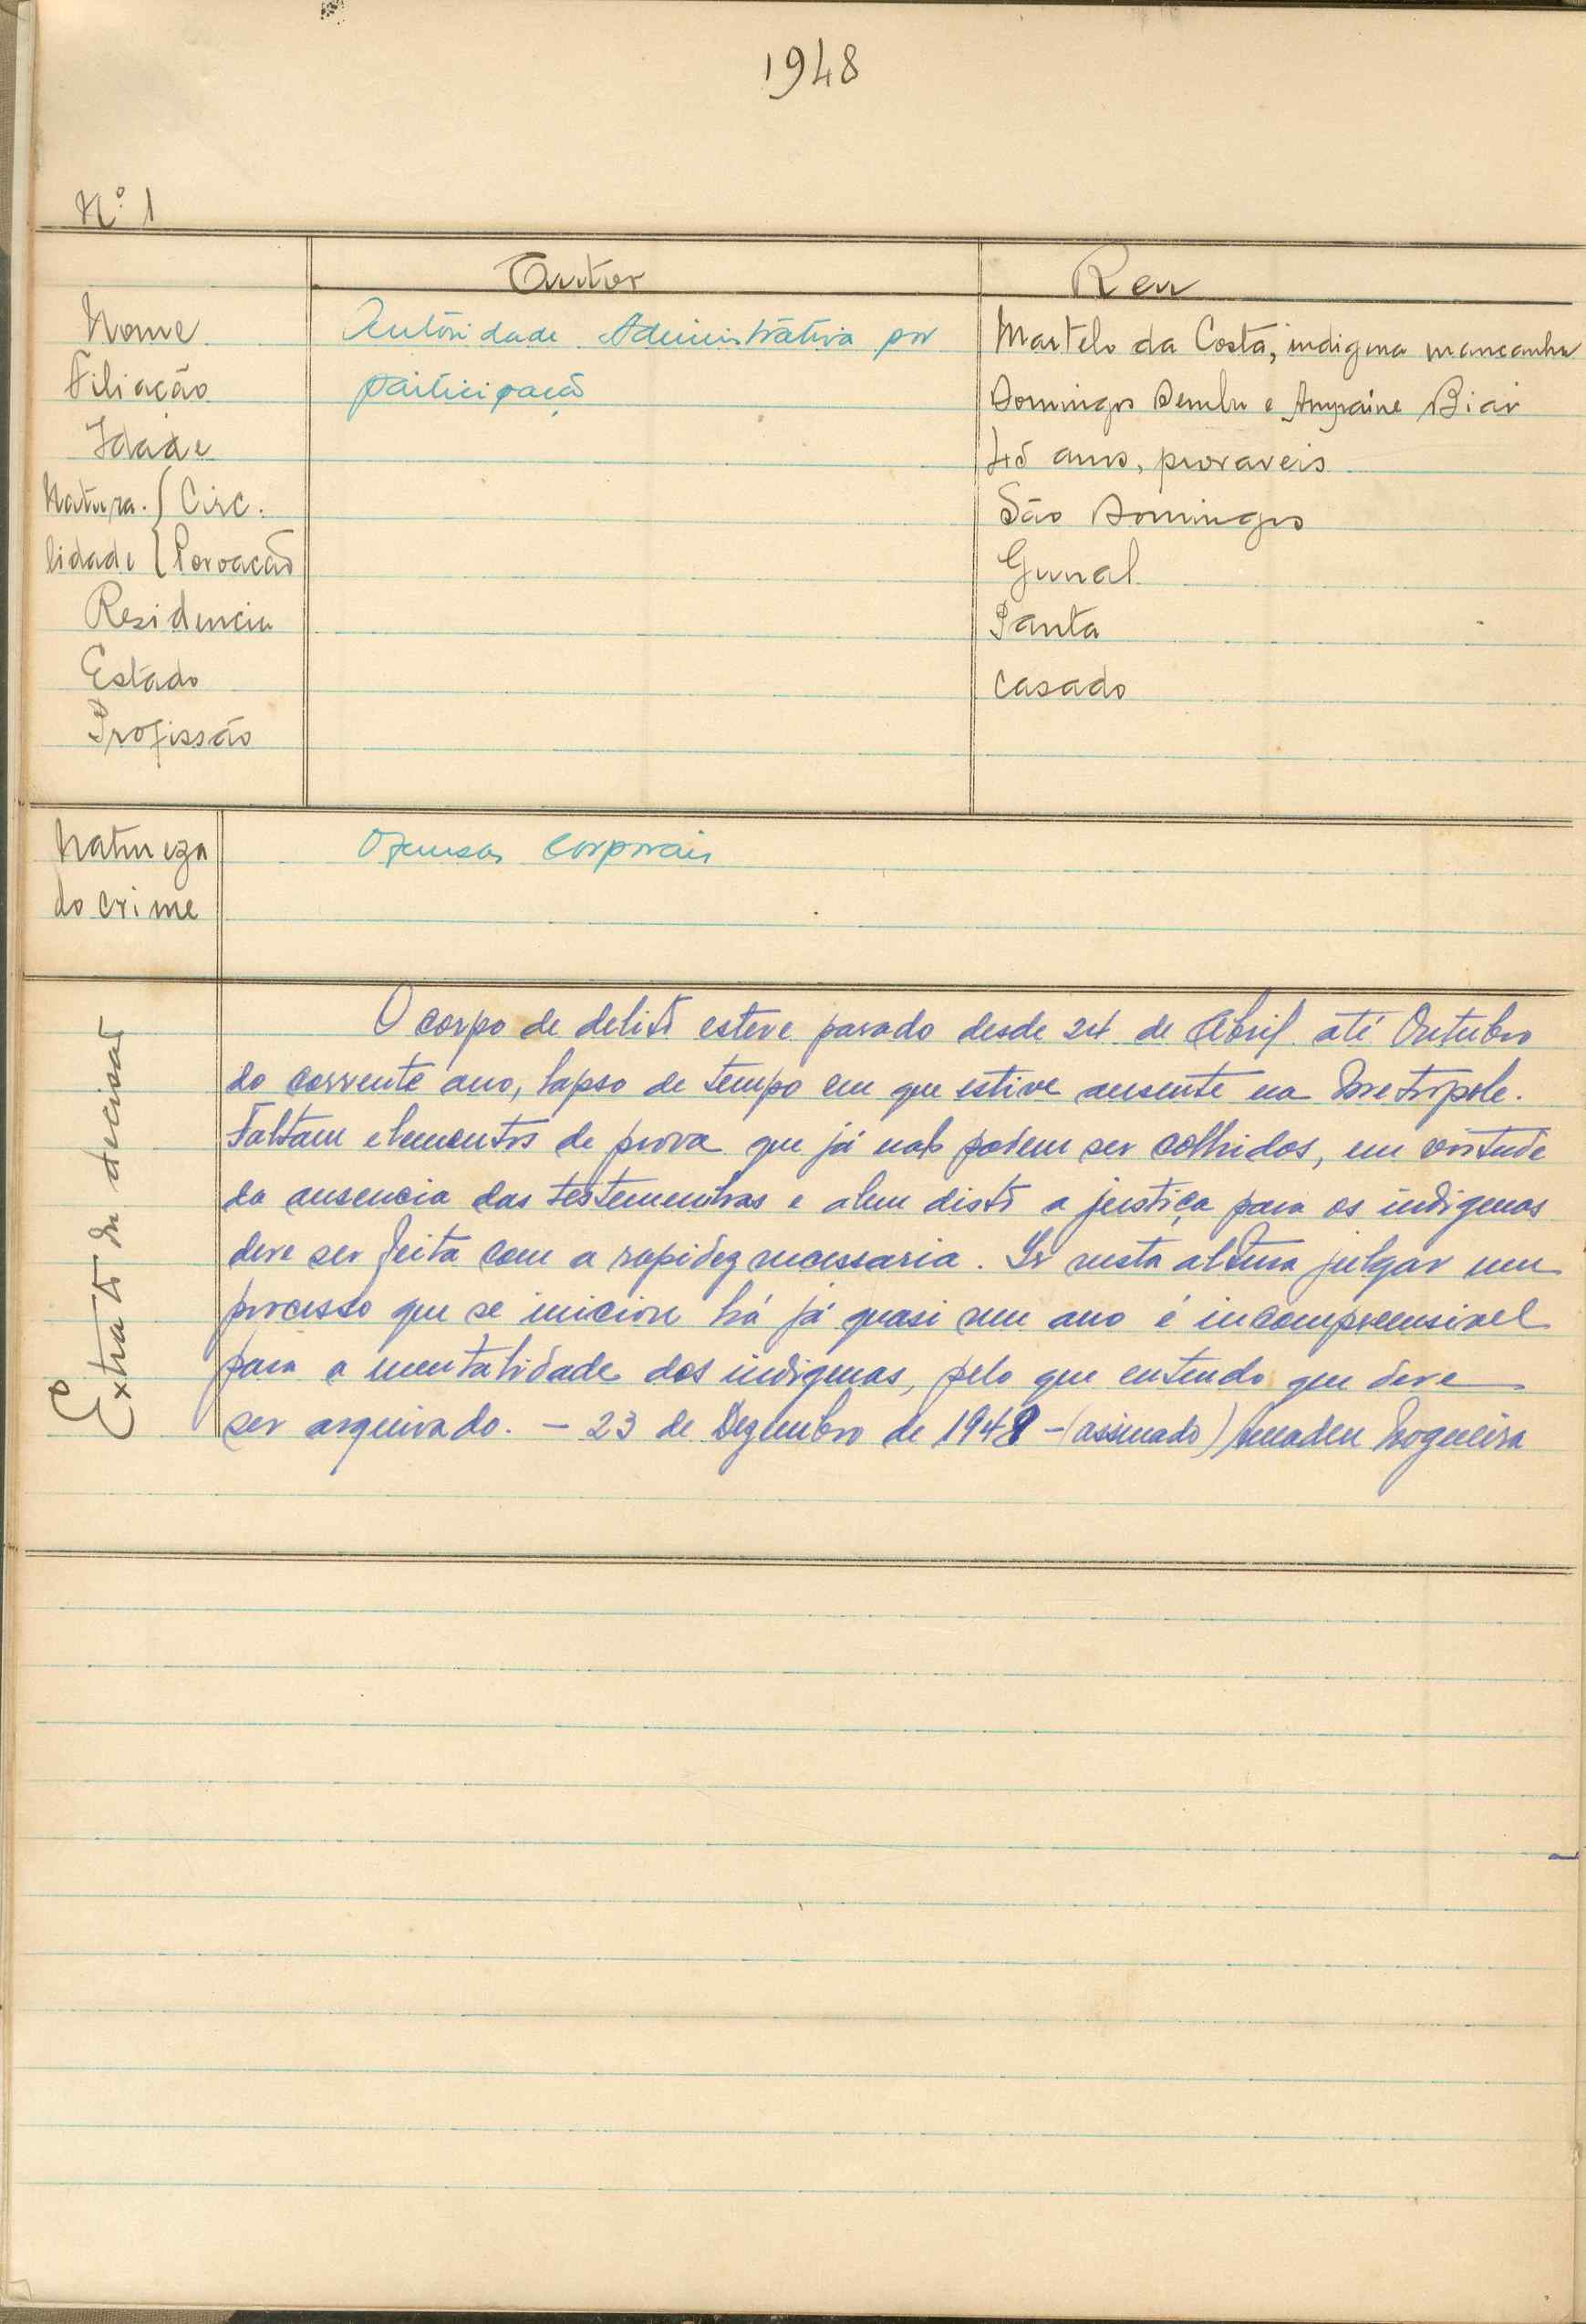 1948
Nº 1
Autor Reu
Nome Autoridade Administrativa por Martelo da Costa, indigena mancanha
Filiação participação Domingos e Biai
Idade 45 anos, provaveis
Natura- { Circ. São Domingos
lidade { Povoação Gunal
Residencia Santa
Estado casado
Profissão
Natureza Ofensas corporais
do crime
Extrato da decisão
O corpo de delito esteve parado desde 24 de Abril até Outubro
do corrente ano, lapso de tempo em que estive ausente na Metropole.
Faltam elementos de prova que já não podem ser colhidos, em virtude
da ausencia das testemunhas e alem disto a justiça para os indigenas
deve ser feita com a rapidez necessaria. Ir nesta altura julgar um
processo que se iniciou há já quasi um ano é incompreensivel
para a mentalidade dos indigenas, pelo que entendo que deve
ser arquivado. - 23 de Dezembro de 1948 - (assinado) Amadeu Nogueira